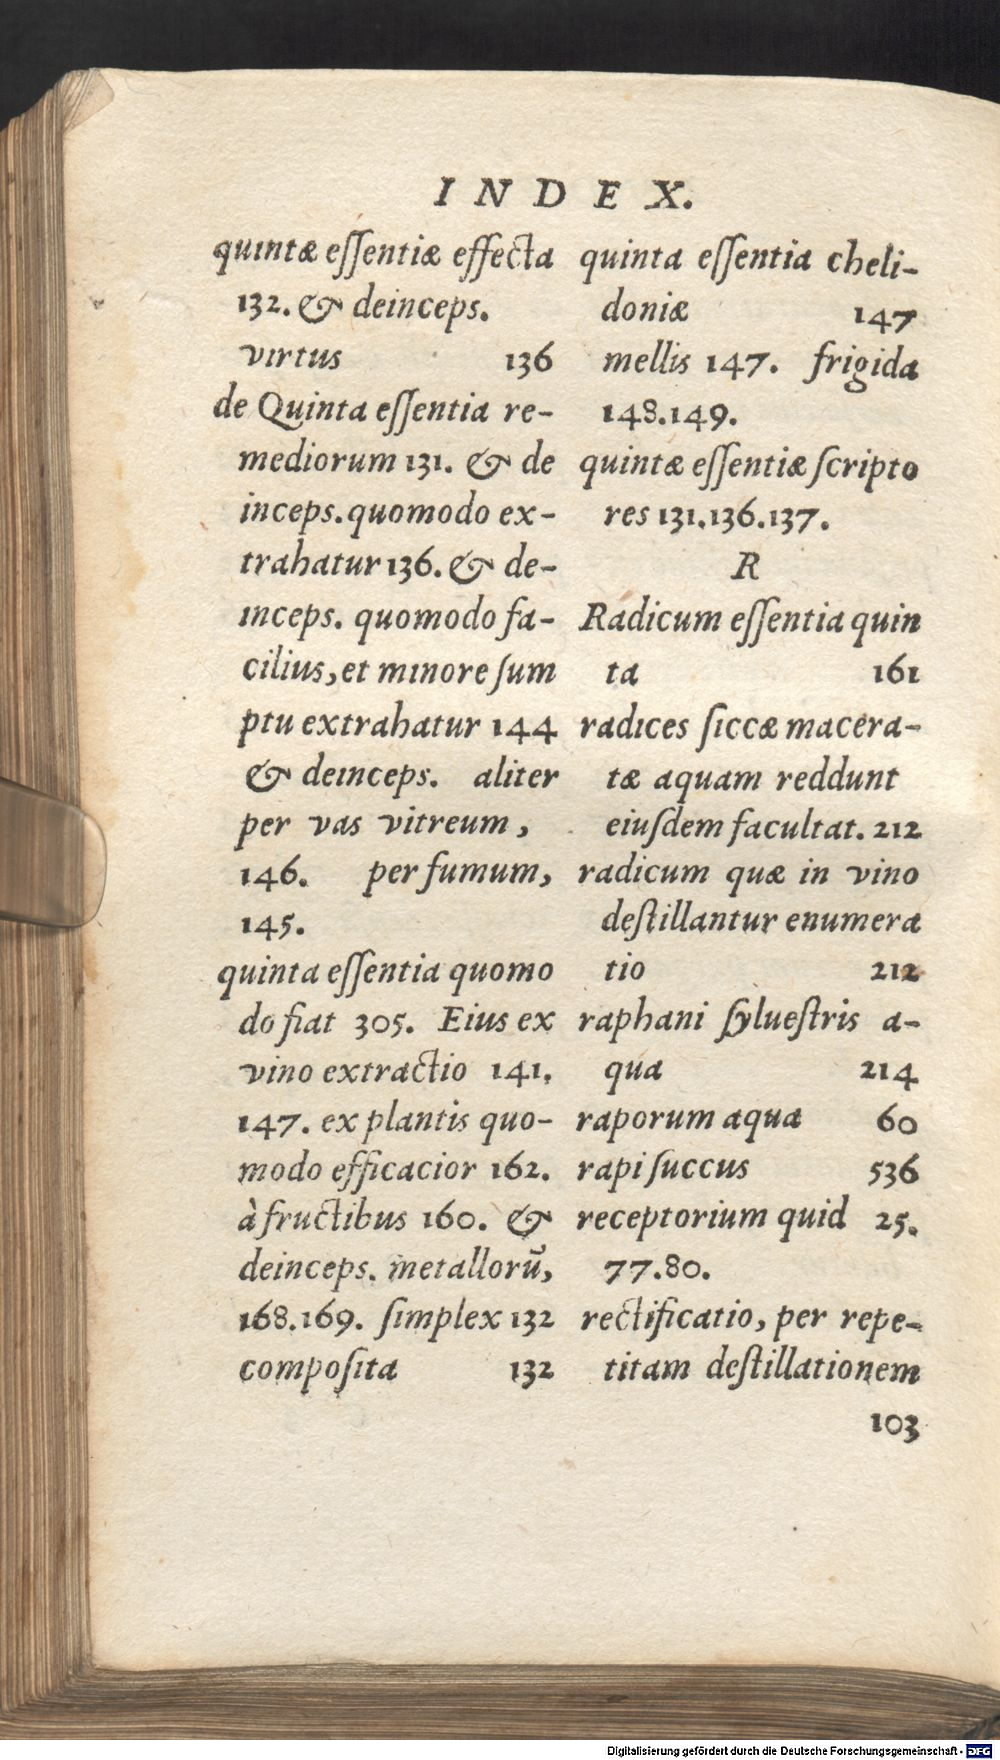 INDEX.
quintæ eſſentiæ effecta
132. & deinceps.
virtus 136
de Quinta eſſentia re-
mediorum 131. & de
inceps. quomodo ex-
trahatur 136. & de-
inceps. quomodo fa-
cilius, et minore ſum
ptu extrahatur 144
& deinceps. aliter
per vas vitreum,
146. per fumum,
145.
quinta eſſentia quomo
do fiat 305. Eius ex
vino extractio 141.
147. ex plantis quo-
modo efficacior 162.
à fructibus 160. &
deinceps. metallorũ,
168.169. ſimplex 132
compoſita 132
quinta eſſentia cheli-
doniæ 147
mellis 147. frigida
148.149.
quintæ eſſentiæ ſcripto
res 131.136.137.
R
Radicum eſſentia quin
ta 161
radices ſiccæ macera-
tæ aquam reddunt
eiuſdem facultat. 212
radicum quæ in vino
deſtillantur enumera
tio 212
raphani ſylueſtris a-
qua 214
raporum aqua 60
rapi ſuccus 536
receptorium quid 25.
77.80.
rectificatio, per repe-
titam deſtillationem
103
Digitalisierung gefördert durch die Deutsche Forschungsgemeinschaft - DFG